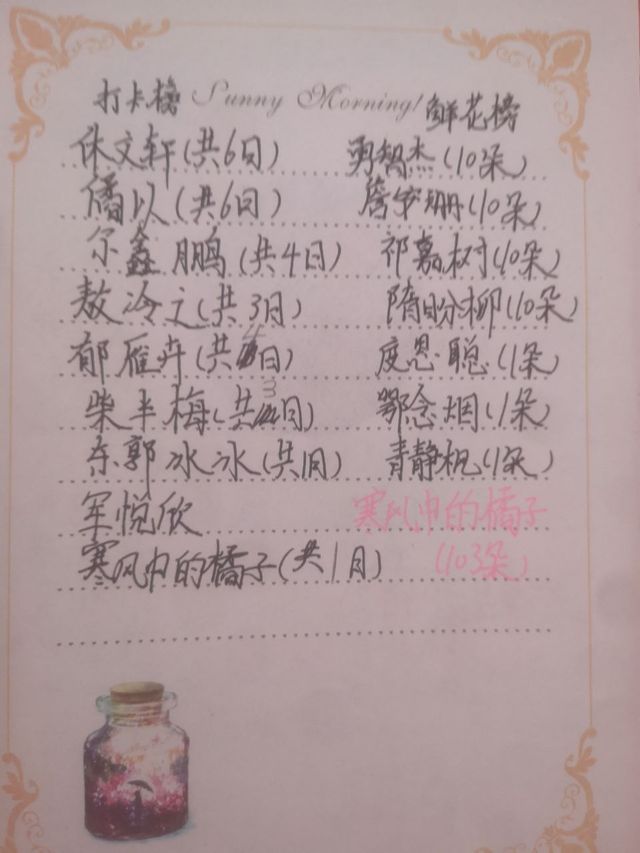 打卡榜 Sunny Morning! 鲜花榜
休文轩(共6日) 勇智杰(10朵)
僑以(共6日) 詹笑珊(10朵)
尔鑫鹏(共4日) 祁嘉树(10朵)
敖冷之(共3日) 隋盼柳(10朵)
郁雁卉(共4日) 度恩聪(1朵)
柴半梅(共3日) 鄂念烟(1朵)
东郭冰冰(共1日) 青静枫(1朵)
军悦欣 寒风中的橘子
寒风中的橘子(共1月) (103朵)